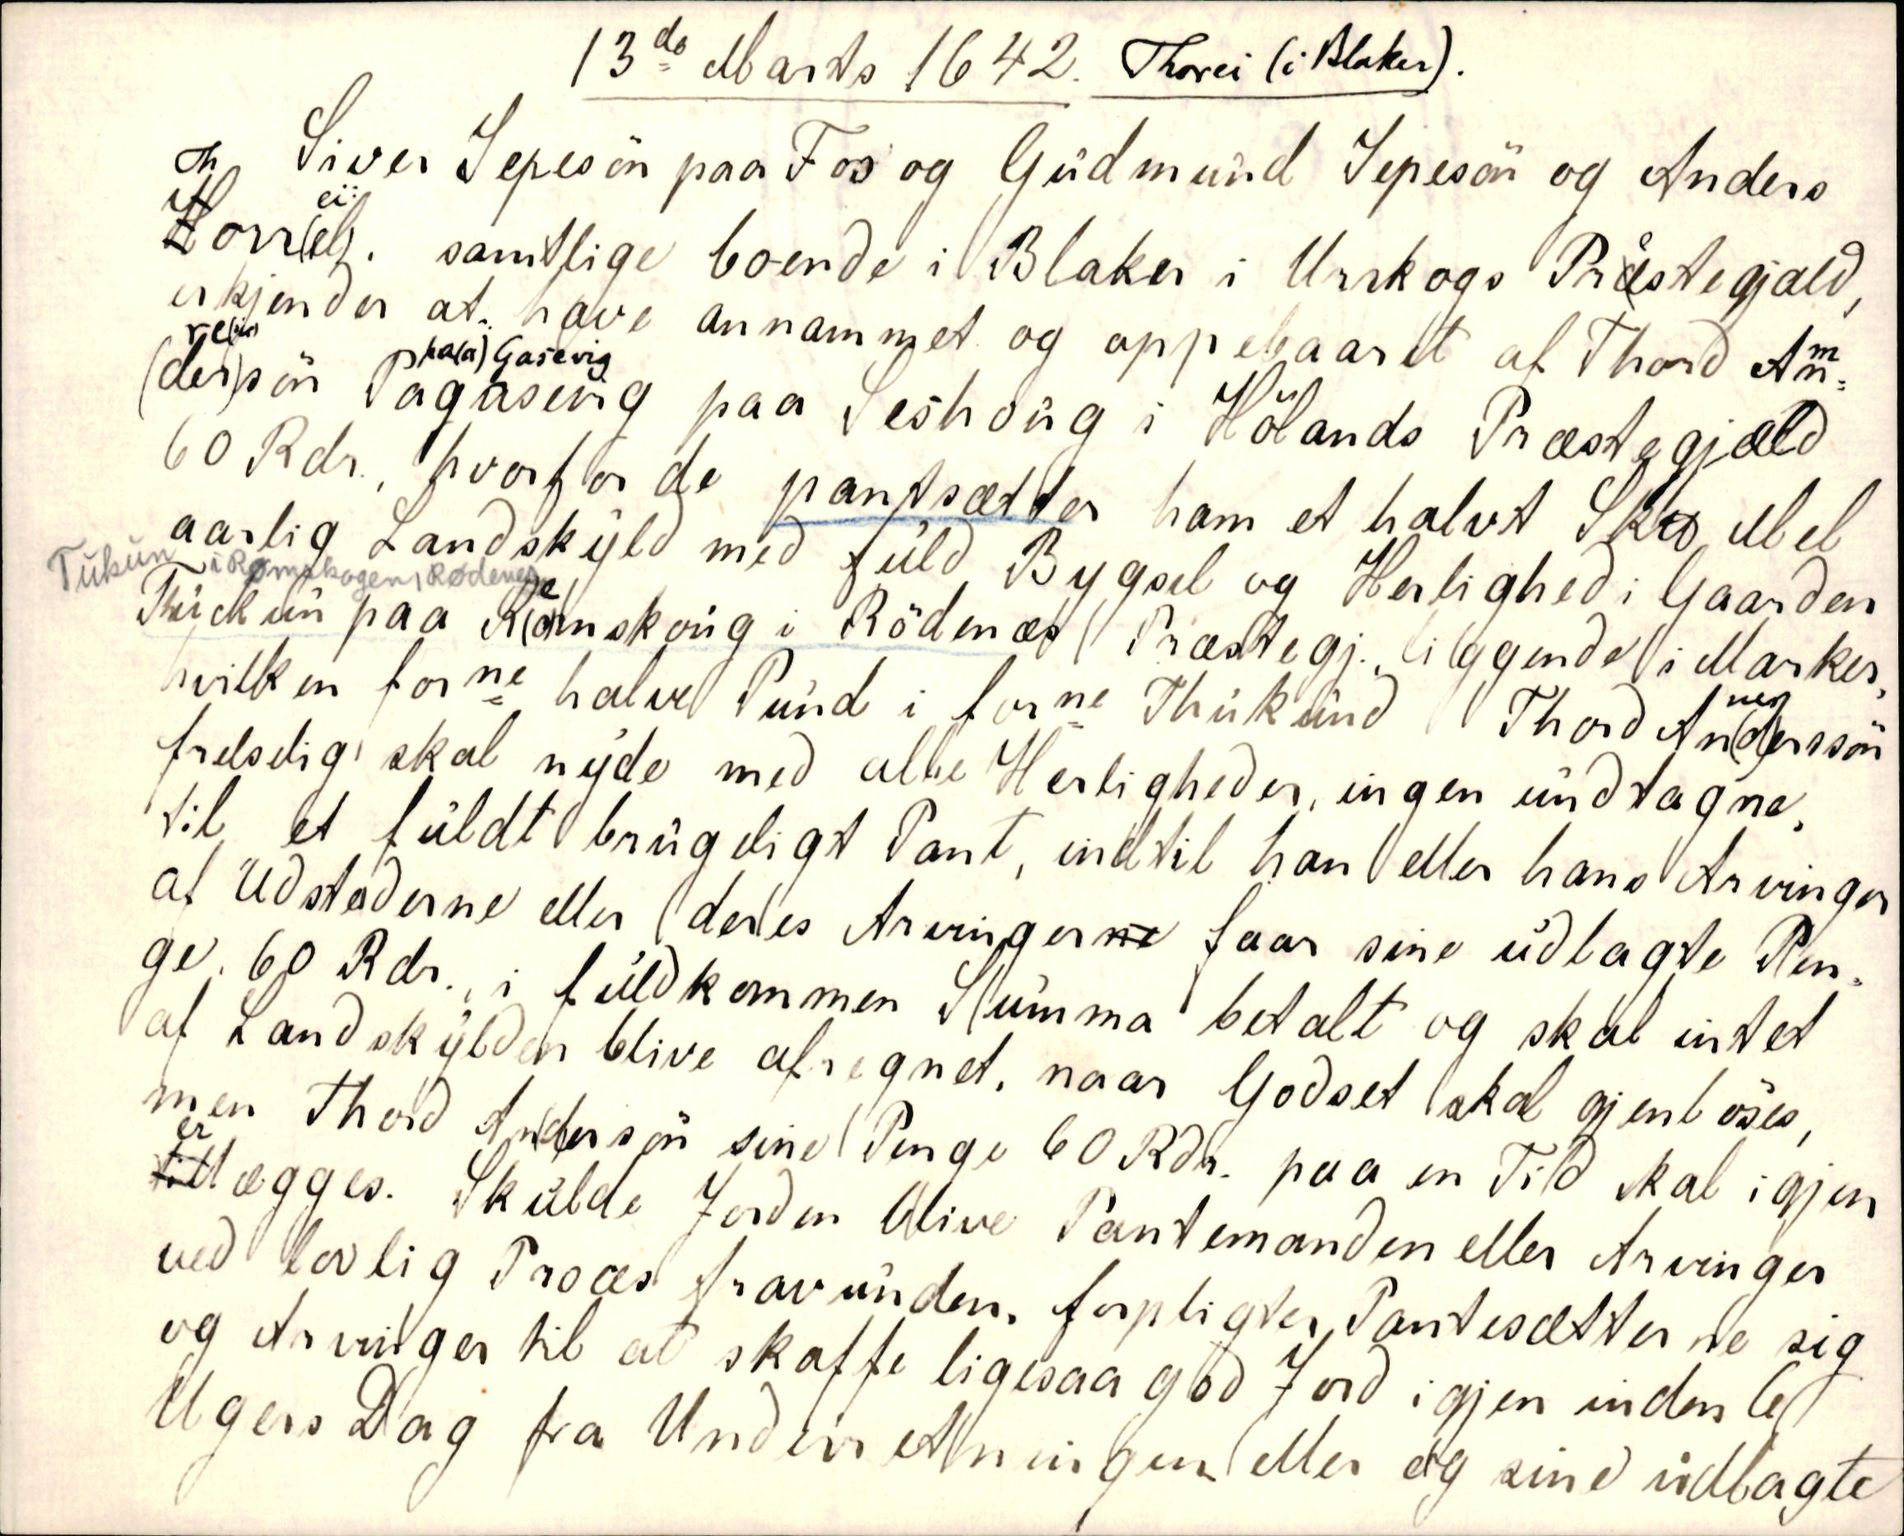 13de Marts 1642. Thorei (i Blaker).
Siver Jepesön paa Fos og Gudmund Jepesön og Anders
Th
ei:
Horr(el). samtlige boende i Blaker i Urskogs Præstegjæld,
erkjender at have annammet og oppebaaret af Thord Am=
re(in) pa(a) Gasevig
(der)sön Pagasevig paa Seshoug i Hölands Præstegjæld
60 Rdr., hvorfor de pantsætter ham et halvt Skd Mel
aarlig Landskyld med fuld Bygsel og Herlighed i Gaarden
Tukun i Rømskogen, Rødenes
Thückun paa R(o)mskoug i Rödenæs Præstegj., liggende i Marker,
hvilken forne halve Pund i forne Thükund Thord An(d)erssön
frelselig skal nyde med alle Herligheder, ingen undtagne,
til et fuldt brugeligt Pant, indtil han eller hans Arvinger
af Udstederne eller deres Arvingerne faar sine udlagte Pen=
ge, 60 Rdr., i fuldkommen Summa betalt og skal intet
af Landskylden blive afregnet, naar Godset skal gjenlöses,
men Thord An(d)ersön sine Penge 60 Rdr. paa en Tid skal igjen
er
tillægges. Skulde Jorden blive Pantemanden eller Arvinger
ved lovlig Proces fravunden, forpligter Pantesætterne sig
og Arvinger til at skaffe ligesaa god Jord igjen inden 6
Ugers Dag fra Underretningen eller og sine udlagte